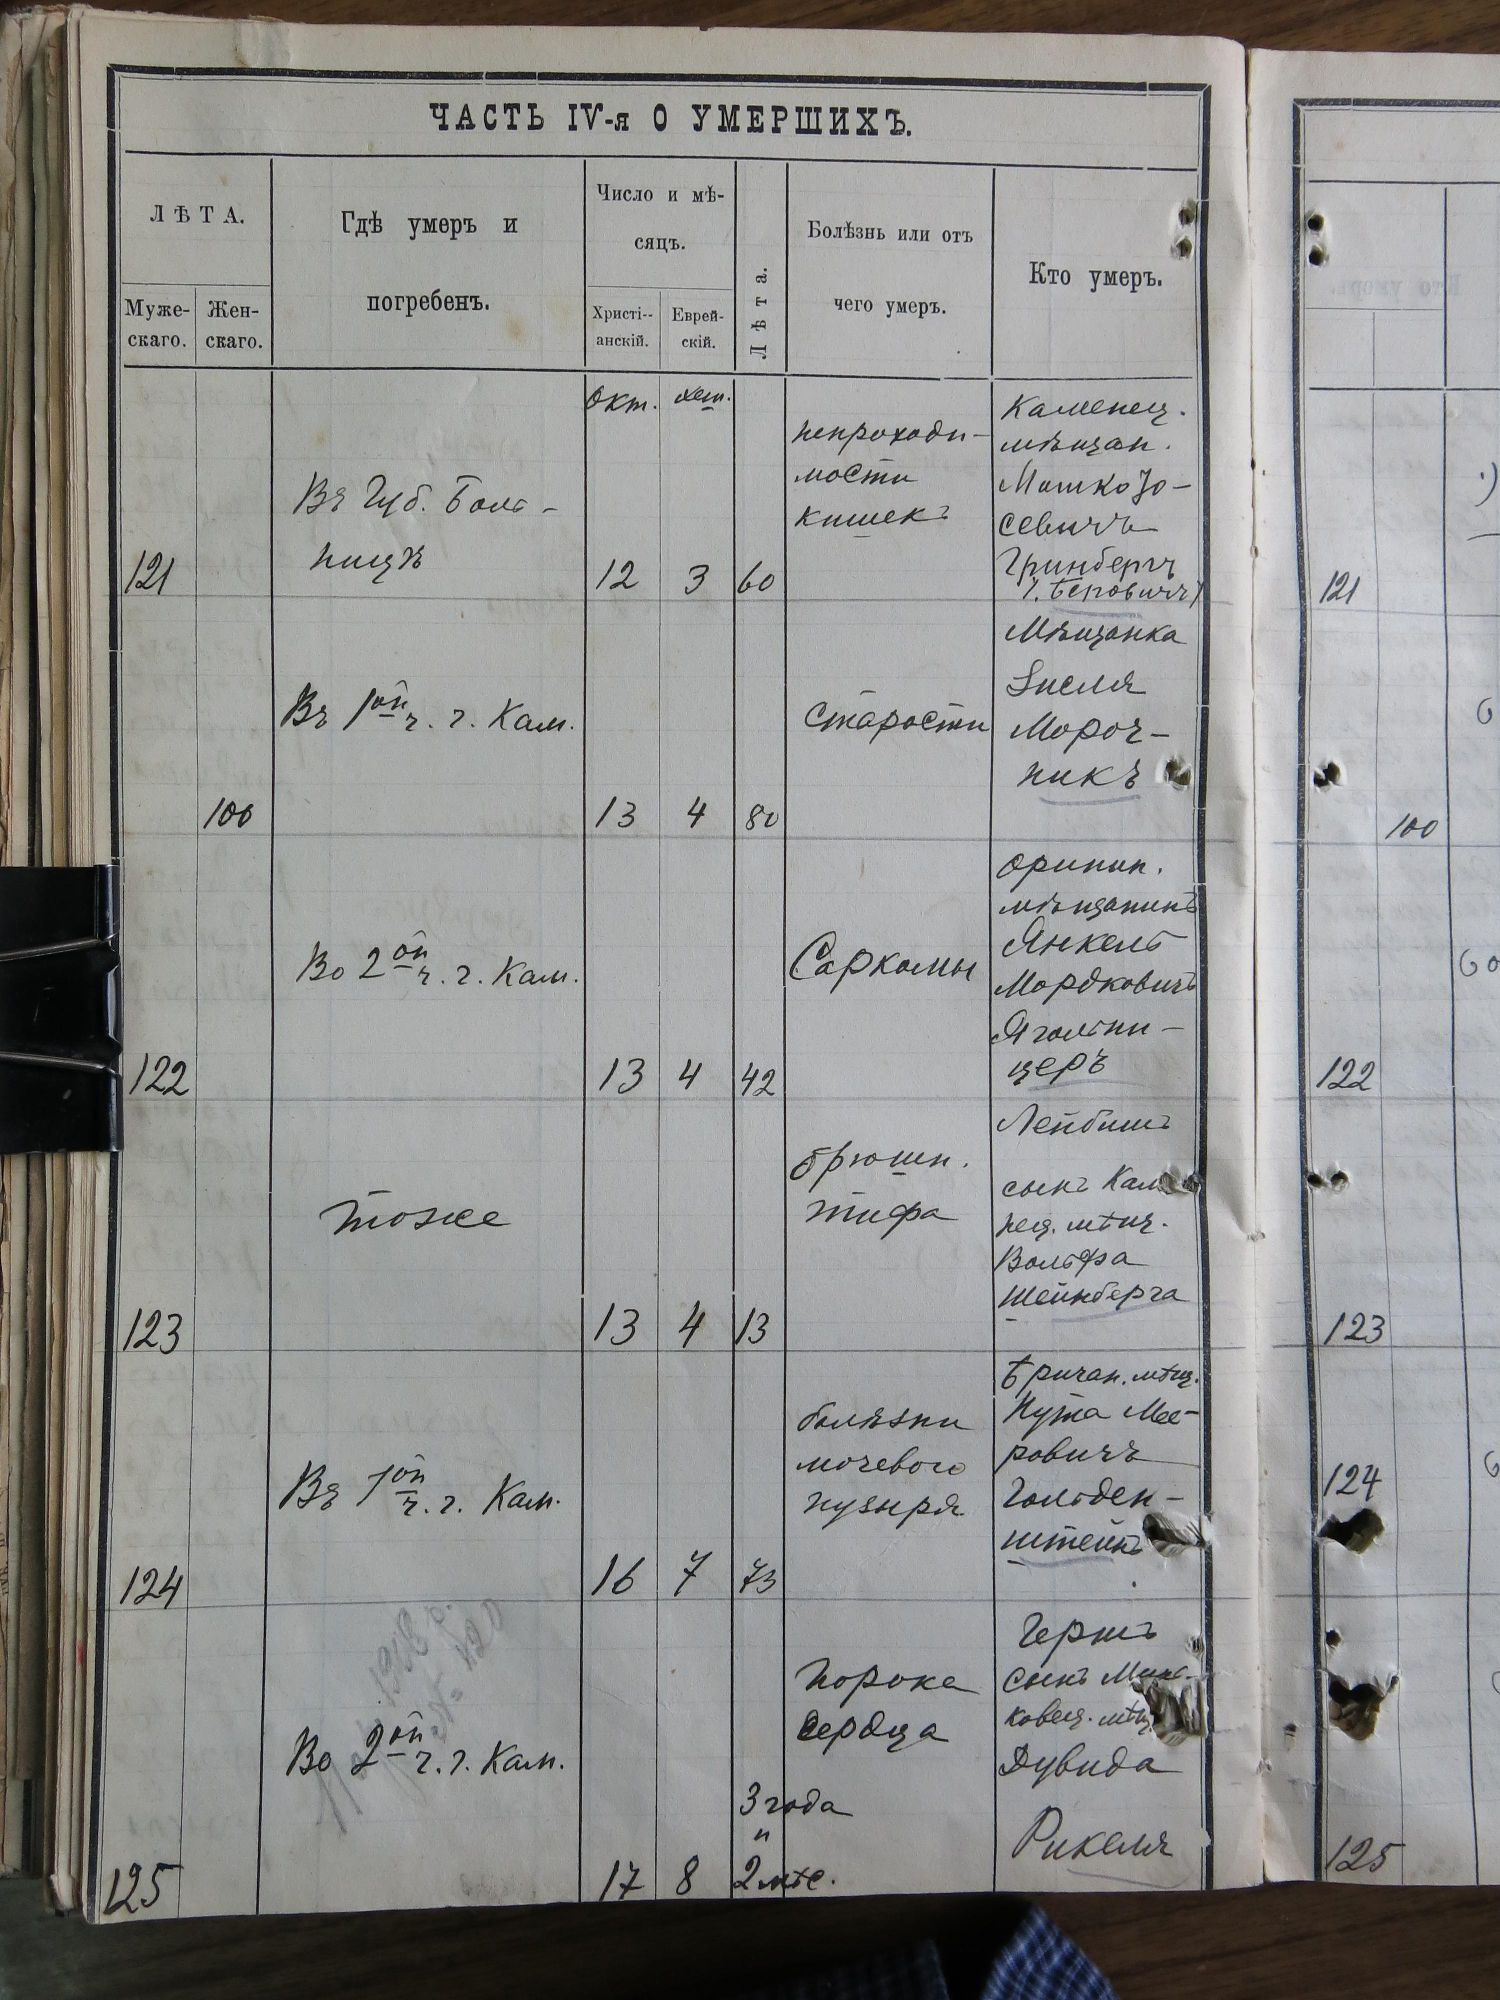 ЧАСТЬ IV-я О УМЕРШИХЪ.
ЛѢТА.
Муже-
скаго.
Жен-
скаго.
Гдѣ умеръ и
погребенъ.
Число и мѣ-
сяцъ.
Христі--
анскій.
Еврей-
скій.
Лѣта.
Болѣзнь или отъ
чего умеръ.
Кто умеръ.
121
Въ Губ. Боль-
ницѣ
Окт.
12
хеш.
3
60
непроходи-
мости
кишекъ
Каменец.
мѣщан.
Мошко Іо-
севичъ
Гринбергъ
Мѣщанка
Мороч-
никъ
100
Въ 1ой ч. г. Кам.
13
4
80
старости
122
Во 2ой ч. г. Кам.
13
4
42
Саркомы
Оринин.
мѣщанинъ
Янкель
Мордковичъ
Ягольни-
церъ
123
тоже
13
4
13
брюшн.
тифа
Лейбишъ
сынъ Кам
нец. мѣщ.
Вольфа
Шейнберга
124
Въ 1ой ч. г. Кам.
16
7
73
болѣзни
мочевого
пузыря
Бричан. мѣщ.
Нута Мее-
ровичъ
Гольден-
штейнъ
125
Во 2ой ч. г. Кам.
17
8
3 года
"
2 мѣс.
порока
сердца
Гершъ
сынъ
ковец. мѣщ.
Дувида
Рикеля
121
100
122
123
124
125